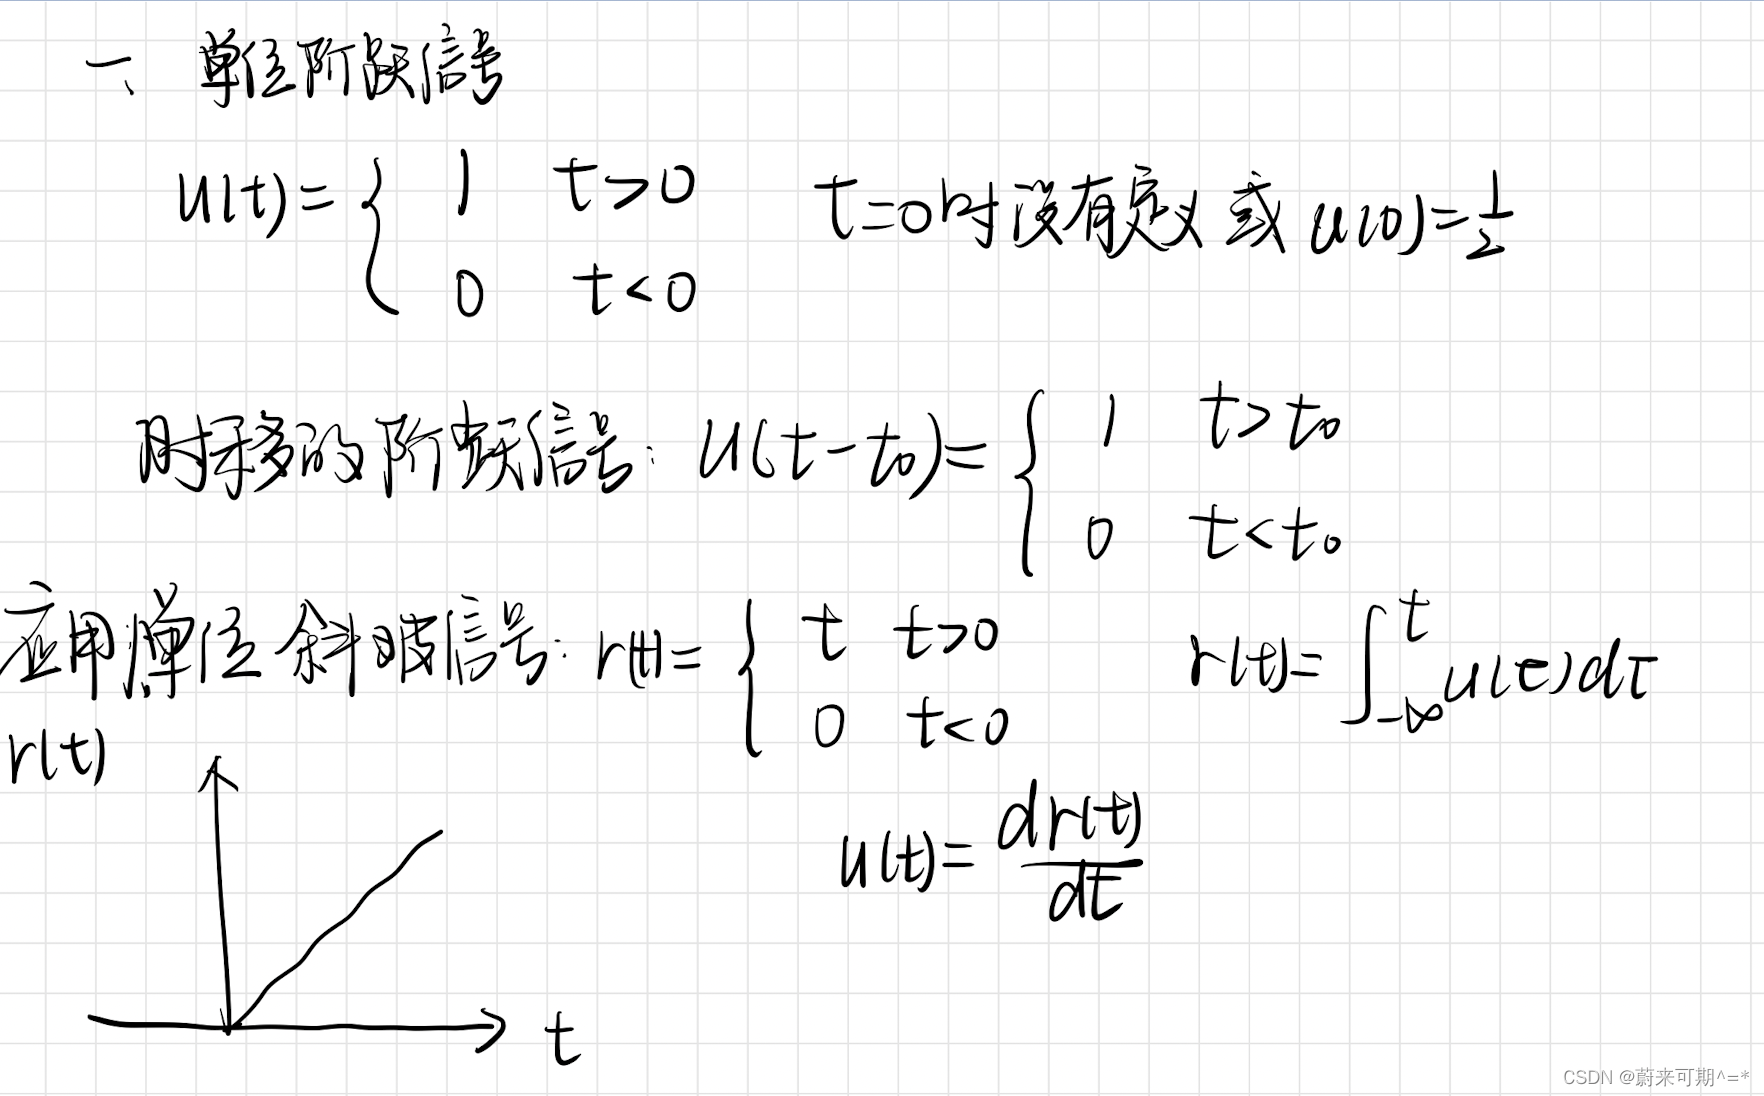 一、 单位阶跃信号
u(t)= { 1 t>0 t=0时没有定义 或 u(0)=1/2
0 t<0
时移的阶跃信号: u(t-t₀)= { 1 t>t₀
0 t<t₀
应用单位斜坡信号: r(t)= { t t>0 r(t)=∫_{-∞}^{t} u(τ)dτ
0 t<0
r(t)
u(t)= dr(t)/dt
t
CSDN @蔚来可期^=*